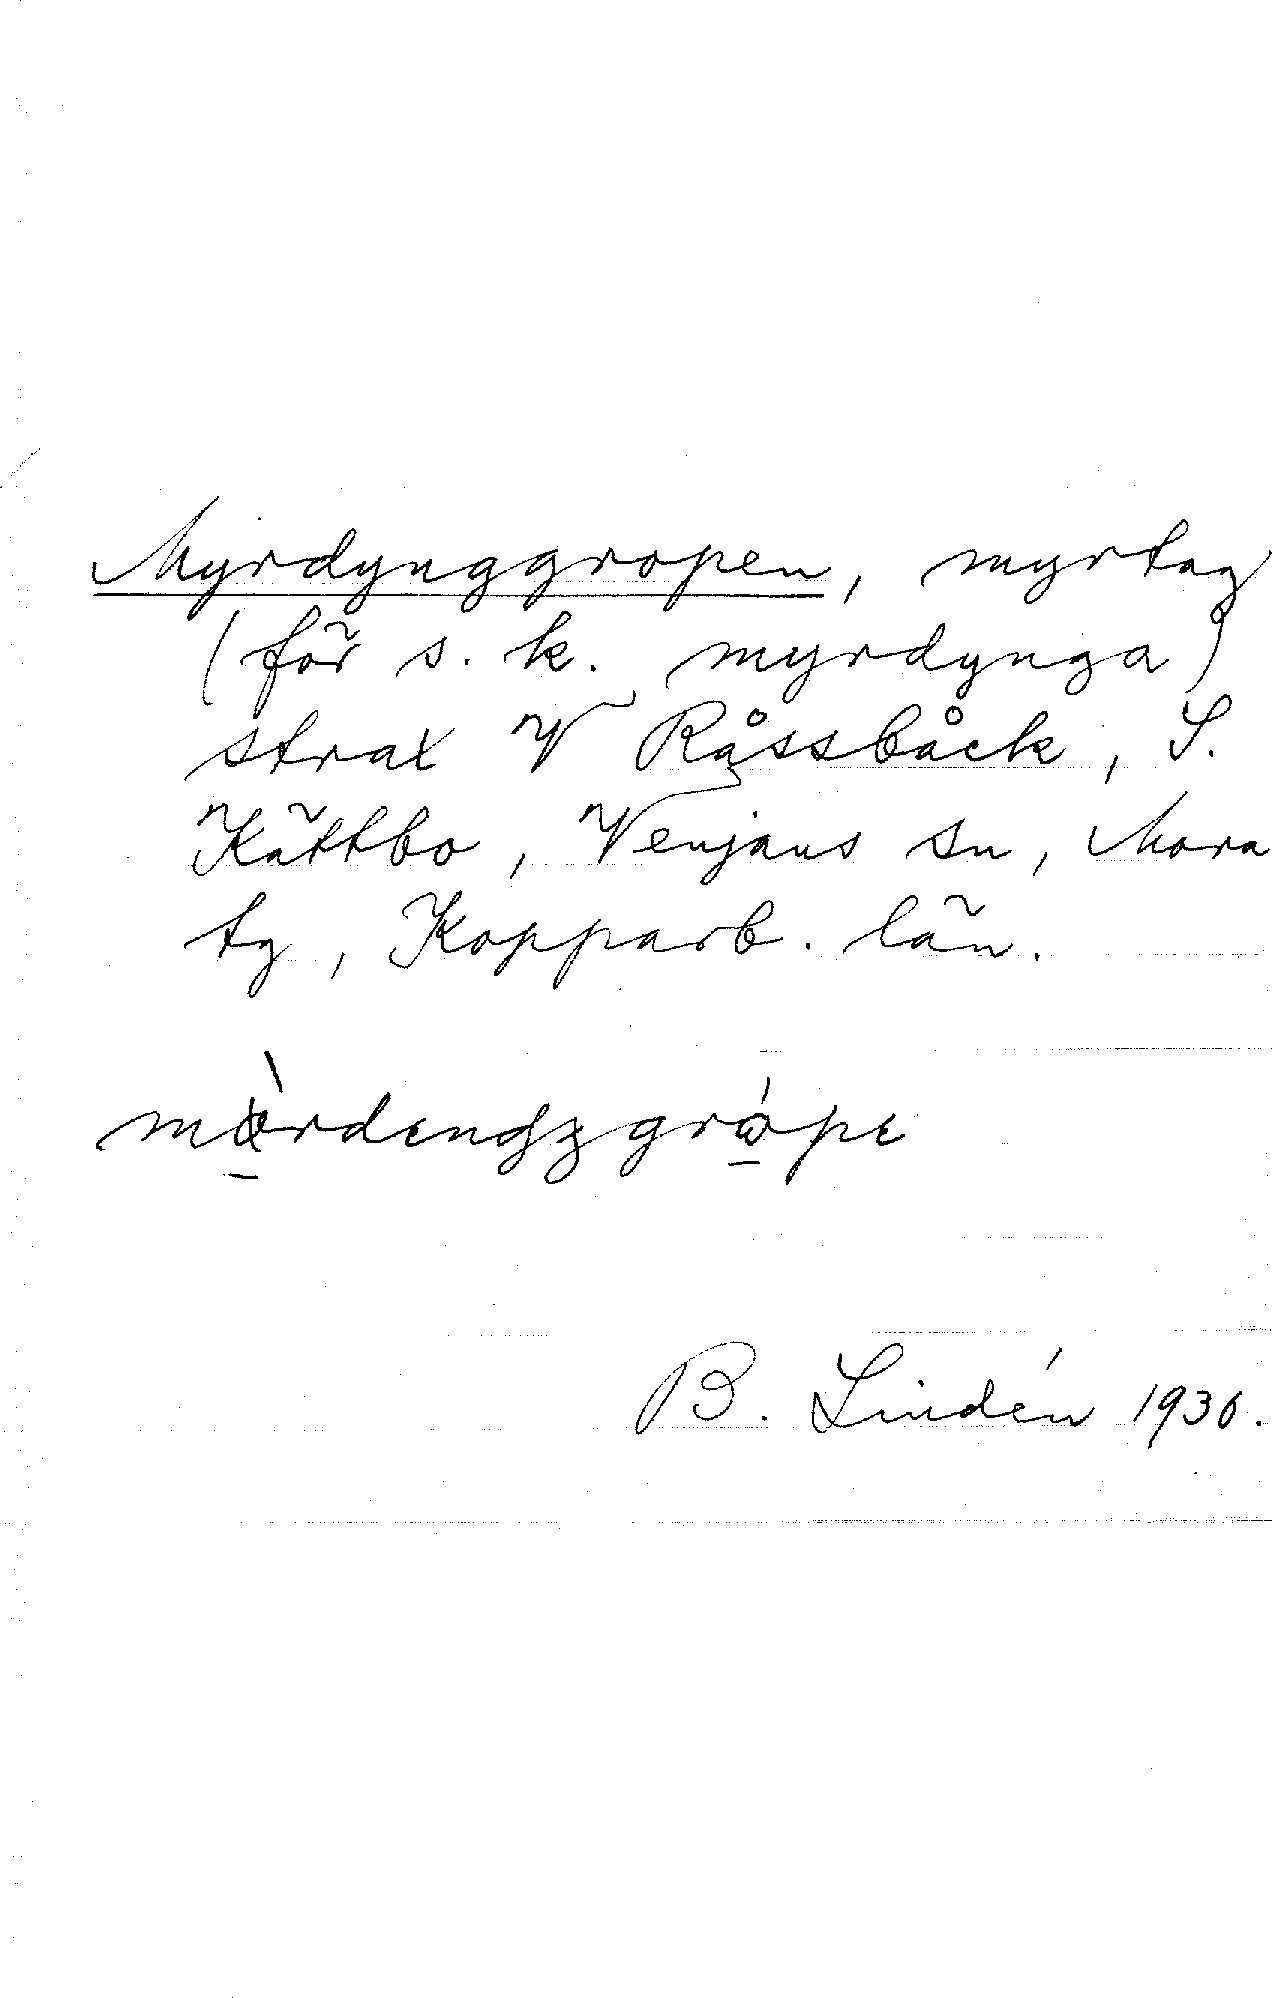 Myrdynggropen, myrtag
(för s. k. myrdynga)
strax V Råssbåck, S.
Kättbo, Venjans sn, Mora
tg, Kopparb. län.
B. Lindén 1936.